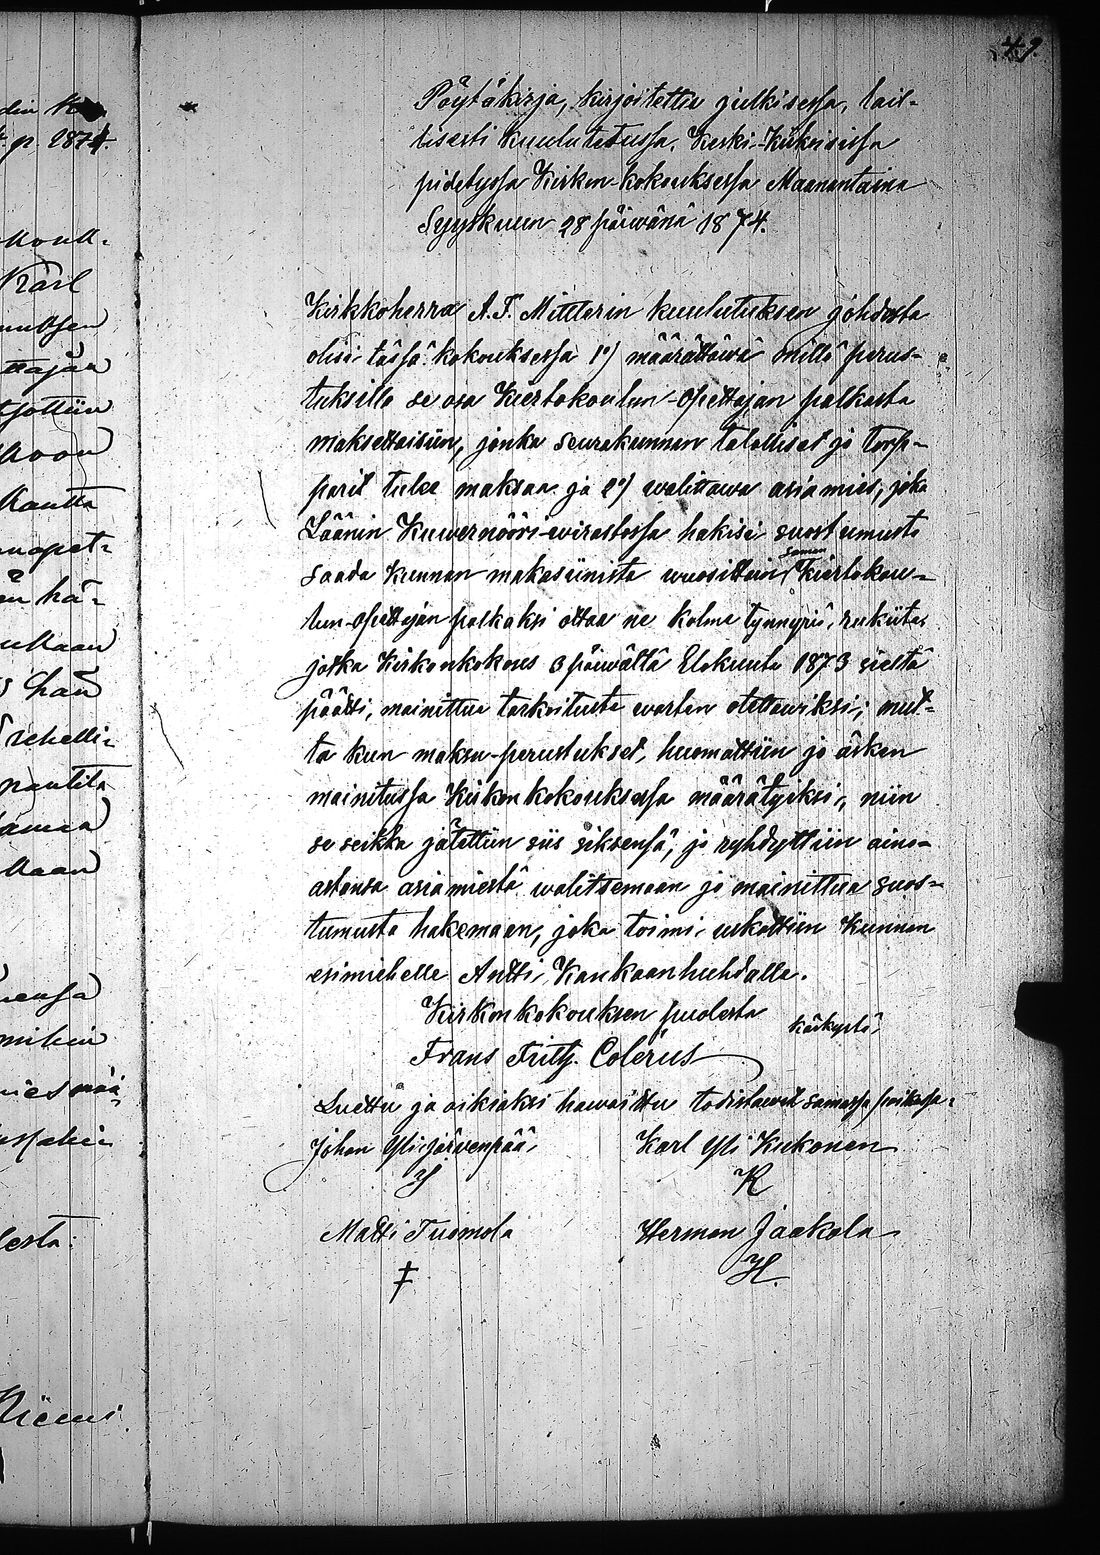 49.
din
p. 1874.
Karl
hän
Niemi
Pöytäkirja, kirjoitettu julkisessa, lail-
lisesti kuulutetussa, Keski-Kuknisissa
pidetyssä Kirkon-kokouksessa Maanantaina
Syyskuun 28 päivänä 1874.
Kirkkoherra A.F. Mittlerin kuulutuksen johdosta
olisi tässä kokouksessa 1º) määrättävä millä perus-
tuksilla se osa Kiertokoulun-Opettajan palkasta
maksettaisiin, jonka Seurakunnan talolliset ja torp-
parit tulee maksaa ja 2º) walittawa asiamies, joka
Läänin Kuwernööri-wirastossa hakisi suostumusta
saada kunnan makasiinista wuosittain saman kiertokou-
lun-opettajan palkaksi ottaa ne kolme tynnyriä rukiita,
jotka Kirkonkokous 3 päiwältä Elokuuta 1873 sieltä
päätti, mainittua tarkoitusta warten otettawiksi; mut-
ta kun maksu-perustukset, huomattiin jo äsken
mainitussa Kirkonkokouksessa määrätyiksi, niin
se seikka jätettiin siis siksensä, ja ryhdyttiin aino-
astansa asiamiestä walitsemaan ja mainittua suos-
tumusta hakemaan, joka toimi uskottiin Kunnan
esimiehelle Antti Kankaanhuhdalle.
Kirkonkokouksen puolesta
käskystä,
Frans Frith. Colerus
Luettu ja oikiaksi hawaittu todistawat samassa paikassa:
Johan Yli-järwenpää,
Karl Yli Kukonen
J
K
Matti Tuomola
Herman Jaakola
‡
H.